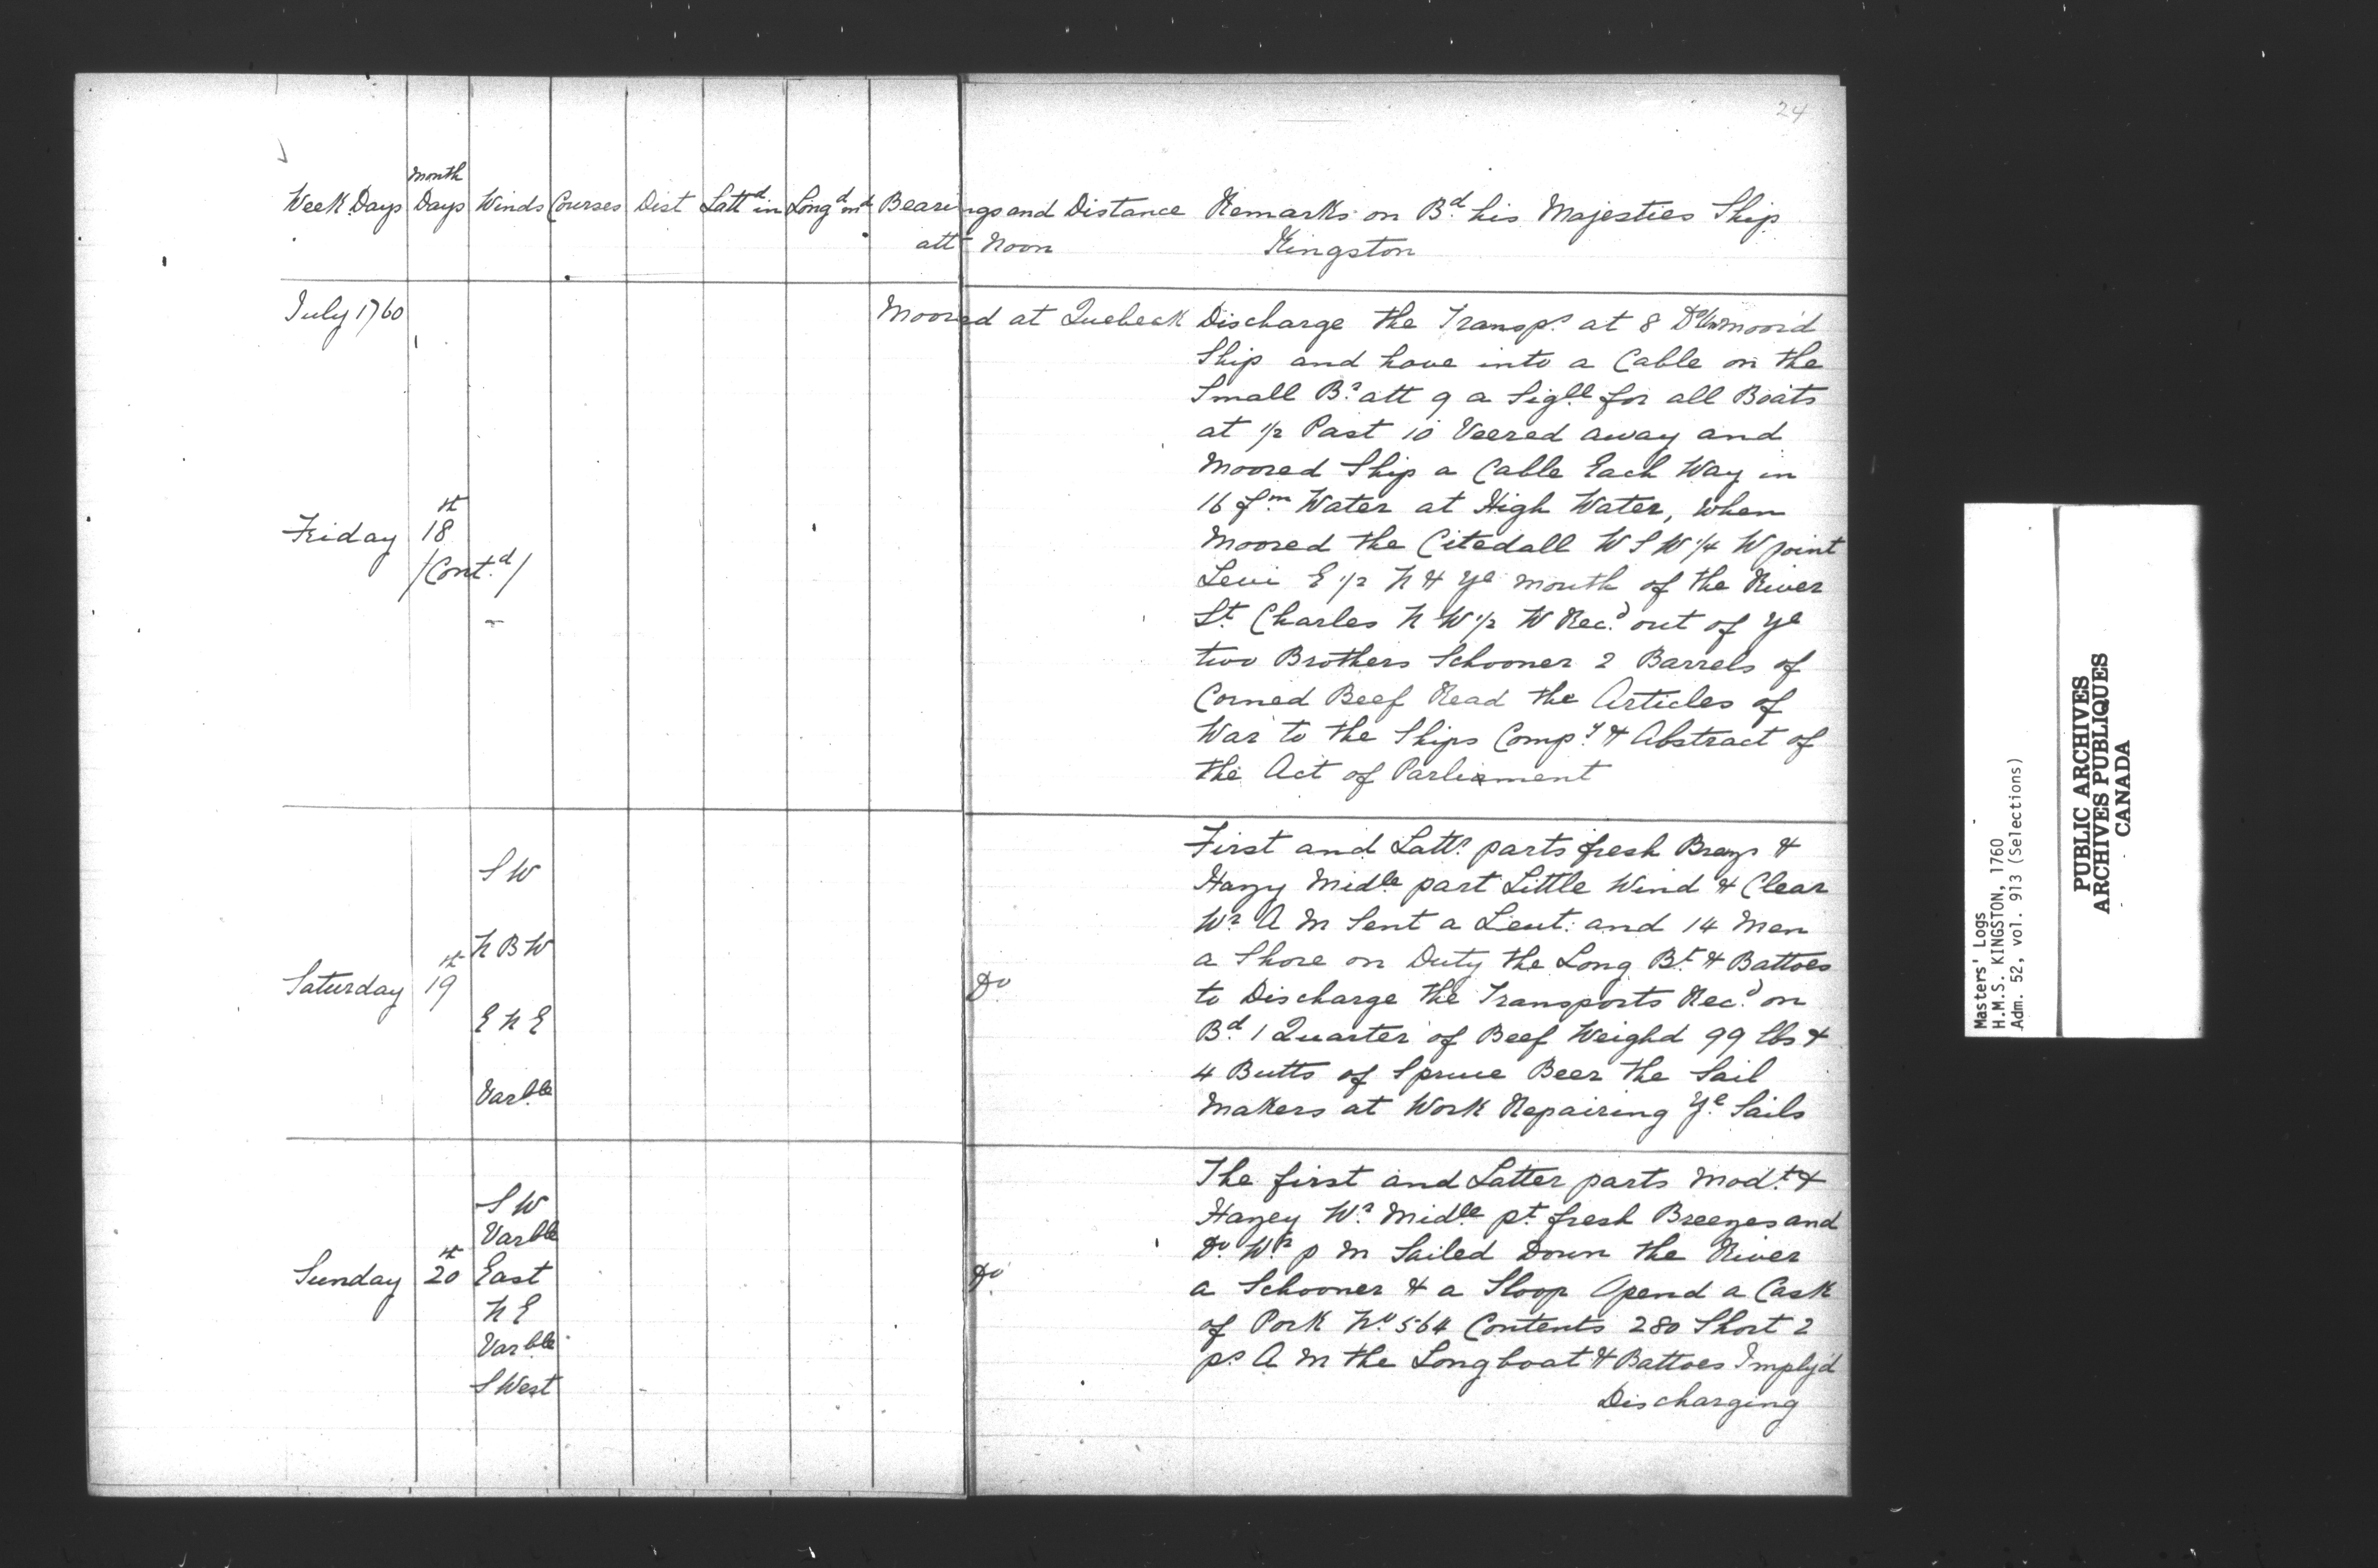 24
Week Days Month Days Winds Courses Dist Lattd in Longd ind Bearings and Distance att Noon Remarks on Bd his Majesties Ship
Kingston
July 1760
Moored at Quebeck
Friday 18th
/Contd/
Discharge the Transps at 8 Do Unmoor'd
Ship and hove into a Cable on the
Small Br att 9 a Sigll for all Boats
at 1/2 Past 10 Veered away and
Moored Ship a Cable Each Way in
16 fm Water at High Water, When
Moored the Citedall W S W 1/4 W point
Levi E 1/2 N & ye mouth of the River
St Charles N W 1/2 W Recd out of ye
two Brothers Schooner 2 Barrels of
Corned Beef Read the Articles of
War to the Ships Compy & Abstract of
the Act of Parliament
Saturday 19th
S W
N B W
E N E
Varble
Do
First and Lattr parts fresh Breezs &
Hazy Midle part Little Wind & Clear
Wr A M Sent a Lieut: and 14 Men
a Shore on Duty the Long Bt & Battoes
to Discharge the Transports Recd on
Bd 1 Quarter of Beef Weighd 99 lbs &
4 Butts of Spruce Beer the Sail
Makers at Work Repairing Ye Sails
Sunday 20th
S W
Varble
East
N E
Varble
S West
Do
The first and Latter parts Modt &
Hazey Wr Midle pt fresh Breezes and
Do Wr p m Sailed Down the River
a Schooner & a Sloop Opend a Cask
of Pork No 564 Contents 280 Short 2
ps A M the Longboat & Battoes Imply'd
Discharging
Masters' Logs
H.M.S. KINGSTON, 1760
Adm. 52, vol. 913 (Selections)
PUBLIC ARCHIVES
ARCHIVES PUBLIQUES
CANADA